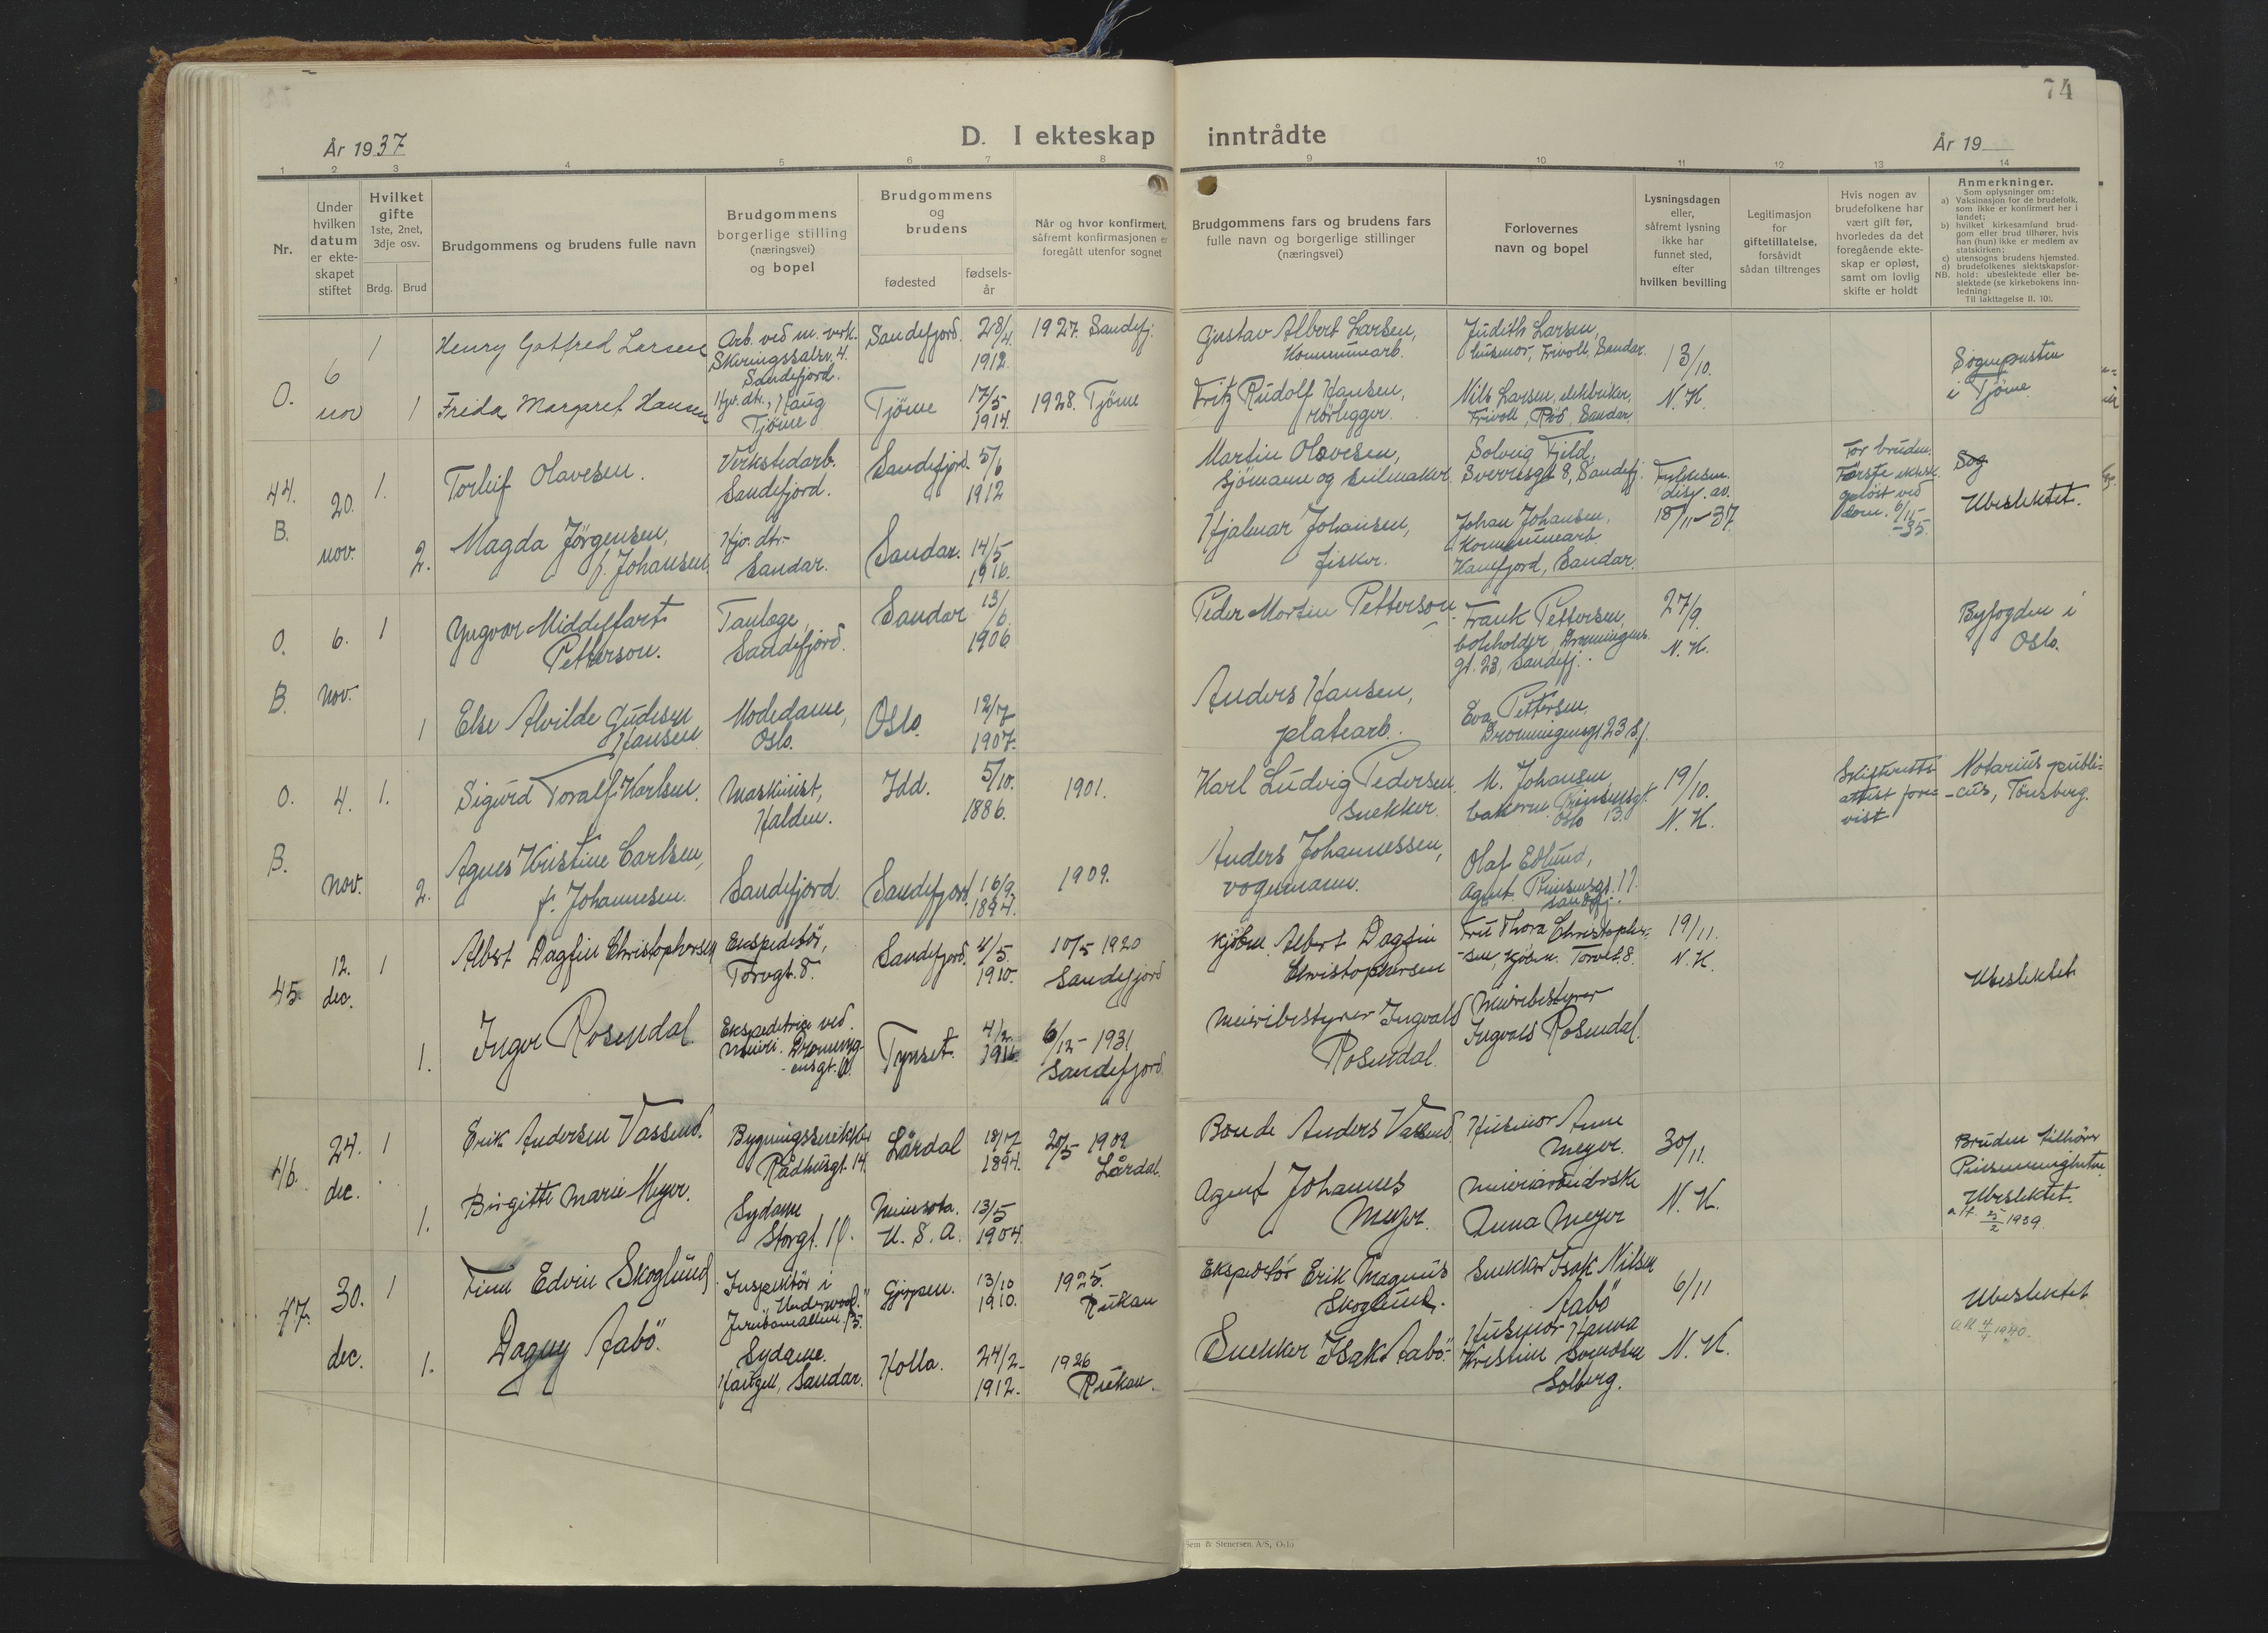 74
År 1937
D. I ekteskap inntrådte
År 19
1 2 3 4 5 6 7 8 9 10 11 12 13 14
Nr.
Under
hvilken
datum
er ekte-
skapet
stiftet
Hvilket
gifte
1ste, 2net,
3dje osv.
Brdg. Brud
Brudgommens og brudens fulle navn
Brudgommens
borgerlige stilling
(næringsvei)
og bopel
Brudgommens
og
brudens
fødested
fødsels-
år
Når og hvor konfirmert,
såfremt konfirmasjonen er
foregått utenfor sognet
Brudgommens fars og brudens fars
fulle navn og borgerlige stillinger
(næringsvei)
Forlovernes
navn og bopel
Lysningsdagen
eller,
såfremt lysning
ikke har
funnet sted,
efter
hvilken bevilling
Legitimasjon
for
giftetillatelse,
forsåvidt
sådan tiltrenges
Hvis nogen av
brudefolkene har
vært gift før,
hvorledes da det
foregående ekte-
skap er opløst,
samt om lovlig
skifte er holdt
Anmerkninger.
Som oplysninger om:
a) Vaksinasjon for de brudefolk,
som ikke er konfirmert her i
landet;
b) hvilket kirkesamfund brud-
gom eller brud tilhører, hvis
han (hun) ikke er medlem av
statskirken;
c) utensogns brudens hjemsted.
d) brudefolkenes slektskapsfor-
NB. hold: ubeslektede eller be-
slektede (se kirkebokens inn-
ledning:
Til iakttagelse II. 10).
O.
6
nov
1
Henry Gotfred Larsen
Arb. ved m. verk.
Skiringssalsv. 4.
Sandefjord.
Sandefjord.
28/4.
1912.
1927. Sandefj.
Gustav Albert Larsen,
Kommunearb.
Judith Larsen,
husmor, Frivoll, Sandar.
13/10.
N. K.
Sognepresten
i Tjøme
1
Frida Margaret Hansen
Hjv. dtr., Haug
Tjöme
Tjöme
17/5
1914.
1928. Tjöme
Fritz Rudolf Hansen,
rörlegger.
Nils Larsen, elektriker,
Frivoll, Rød, Sandar
44.
B.
20.
nov.
1.
Torleif Olavesen.
Verkstedarb.
Sandefjord.
Sandefjord.
5/6
1912
Martin Olavesen,
Sjömann og seilmaker
Solveig Fjeld,
Sverresgt 8, Sandefj.
Fylkesm.
disp. av.
18/11-37.
For bruden:
Förste ektesk.
oplöst ved
dom. 6/11-
-35.
Sog
Ubeslektet.
2.
Magda Jörgensen,
f. Johansen.
Hjv. dtr.
Sandar.
Sandar.
14/5
1916.
Hjalmar Johansen,
fisker.
Johan Johansen,
Kommunearb.
Kamfjord, Sandar.
O.
B.
6.
nov.
1
Yngvar Middelfart
Petterson.
Tanlege,
Sandefjord.
Sandar
13/6
1906
Peder Morten Petterson
Frank Pettersen,
bokholder, Dronningens
gt. 23, Sandefj.
27/9.
N. K.
Byfogden i
Oslo.
1
Else Alvilde Gudesen
Hansen
Modedame,
Oslo.
Oslo.
12/7
1907.
Anders Hansen,
platearb.
Eva Pettersen,
Dronningensgt 23 Sj.
O.
B.
4.
nov.
1.
Sigurd Toralf Karlsen.
Maskinist,
Halden.
Idd.
5/10.
1886.
1901.
Karl Ludvig Pedersen
snekker.
M. Johansen
Prinsensgt.
Oslo 13.
19/10.
N. K.
Skifteretts-
attest fore-
vist
Notarius publi-
-cus, Tönsberg.
2.
Agnes Kristine Carlsen,
f. Johannesen.
Sandefjord.
Sandefjord.
16/9.
1894.
1909.
Anders Johannessen,
vognmann.
Olaf Edlund,
agent. Prinsensgt. 17.
Sandefj.
45.
12.
dec.
1
Albert Dagfin Christophersen
Ekspeditör,
Torvgt. 8.
Sandefjord.
4/5.
1910.
10/5 1920
Sandefjord
Kjöbm. Albert Dagfin
Christophersen
Fru Thora Christopher-
-sen, Kjöbm. Torvet. 8.
19/11.
N. K.
Ubeslektet
1.
Inger Rosendal
Ekspeditrice ved.
meieri. Dronning-
-ensgt. 10.
Tynset.
4/2.
1916.
6/12- 1931
Sandefjord.
Meieribestyrer Ingvald
Rosendal.
Meieribestyrer
Ingvald Rosendal.
46.
24.
dec.
1
Erik Andersen Vassend.
Bygningssnekker
Rådhusgt. 14.
Lårdal
18/7
1894.
20/5 1909
Lårdal.
Bonde Anders Vassend
Husmor Anne
Meyer.
30/11.
N. K.
Bruden tilhörer
Pinsemenigheten.
Ubeslektet.
att. 5/2 1939.
1.
Birgitte Marie Meyer.
Sydame
Storgt. 10.
Minesota.
U. S. A.
13/5
1904.
Agent Johannes
Meyer.
Anna Meyer
47.
30.
dec.
1
Finn Edvin Skoglund
Inspektör i
"Underwood."
Jerusalemalleen 13.
Gjerpen.
13/10
1910.
1925.
Rukan
Ekspeditör Erik Magnus
Skoglund.
Snekker Isak Nilsen
Aabö
6/11
N. K.
Ubeslektet
att 4/4 1940.
1.
Dagny Aabö.
Sydame.
Haugen, Sandar.
Holla.
24/2-
1912.
1926
Rukan.
Snekker Isak Aabö.
Husmor Hanna
Kristine Svendsen
Solberg.
Sem & Stenersen A/S, Oslo